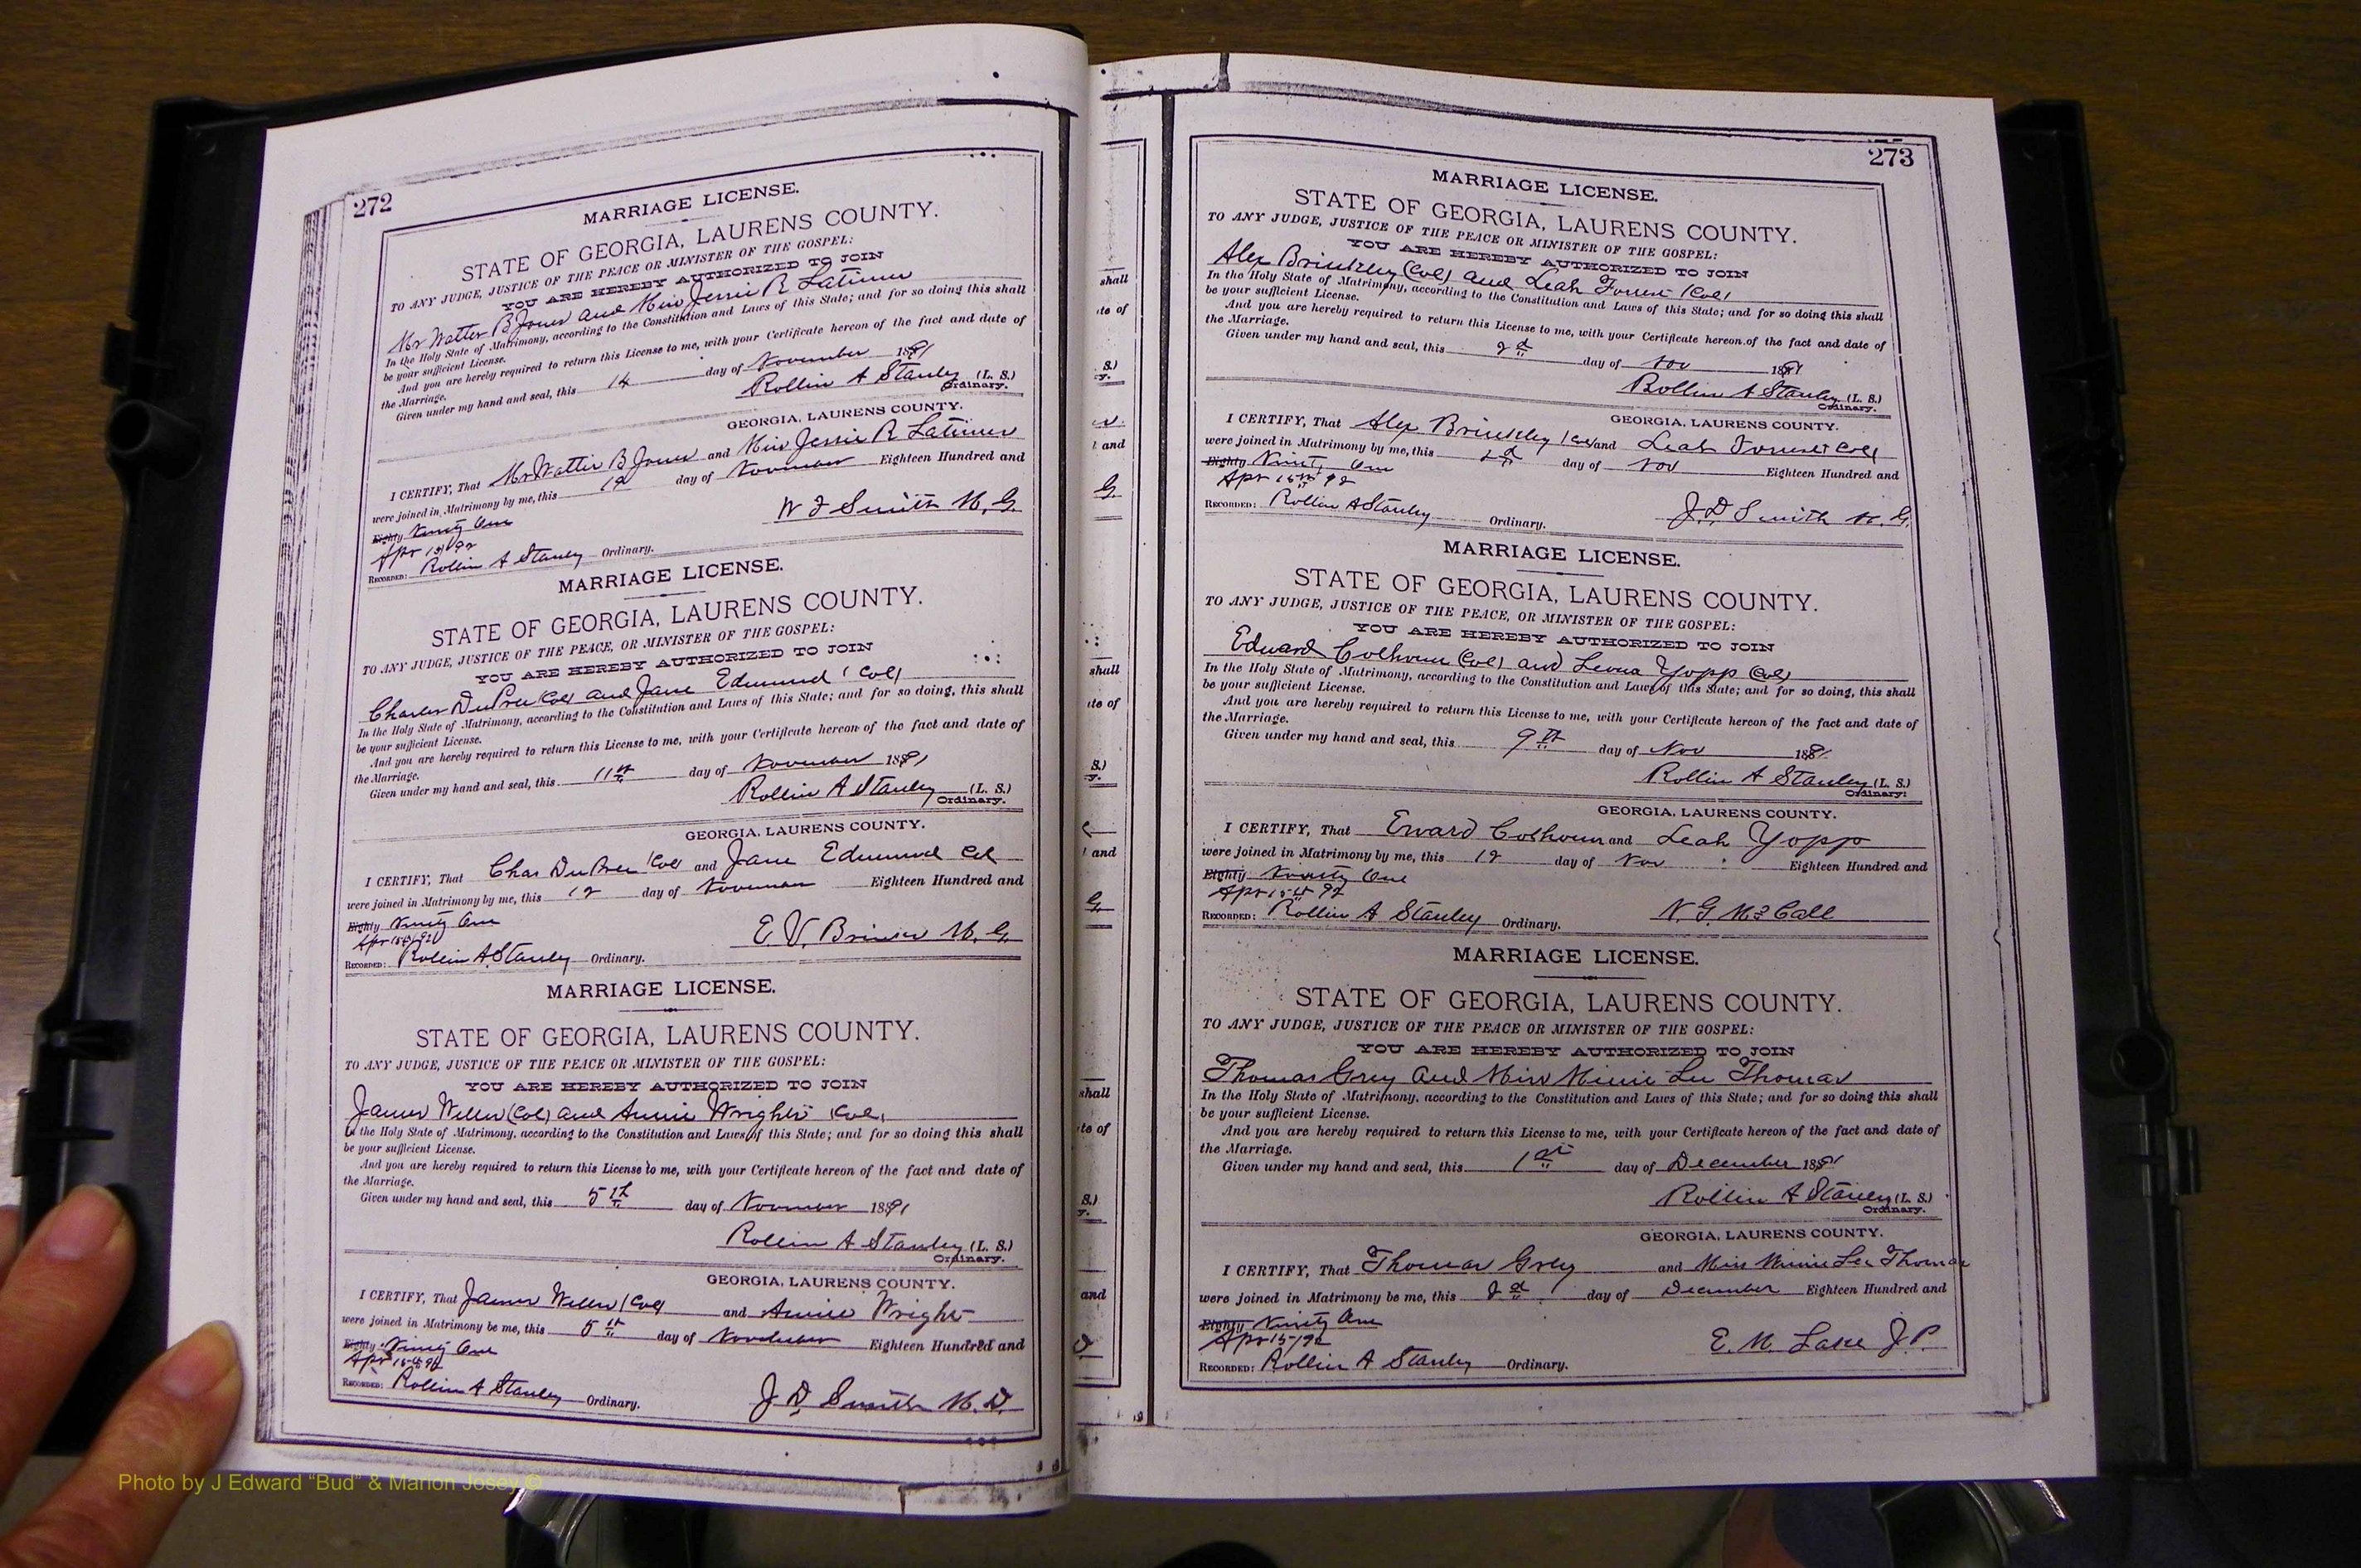 272
MARRIAGE LICENSE.
STATE OF GEORGIA, LAURENS COUNTY.
TO ANY JUDGE, JUSTICE OF THE PEACE OR MINISTER OF THE GOSPEL:
YOU ARE HEREBY AUTHORIZED TO JOIN
Mr Walter B Jones and Miss Jessie R Latimer
In the Holy State of Matrimony, according to the Constitution and Laws of this State; and for so doing this shall
be your sufficient License.
And you are hereby required to return this License to me, with your Certificate hereon of the fact and date of
the Marriage.
Given under my hand and seal, this 14 day of November 1891
Rollin A Stanley (L. S.)
Ordinary.
GEORGIA, LAURENS COUNTY.
I CERTIFY, That Mr Wattie B Jones and Miss Jessie R Latimer
were joined in Matrimony by me, this day of November Eighteen Hundred and
Eighty Ninety One
W S Smith M. G.
Apr 92
RECORDED: Rollin A Stanley Ordinary.
MARRIAGE LICENSE.
STATE OF GEORGIA, LAURENS COUNTY.
TO ANY JUDGE, JUSTICE OF THE PEACE, OR MINISTER OF THE GOSPEL:
YOU ARE HEREBY AUTHORIZED TO JOIN
Charles DuPree (Col) and Jane Edmund (Col)
In the Holy State of Matrimony, according to the Constitution and Laws of this State; and for so doing, this shall
be your sufficient License.
And you are hereby required to return this License to me, with your Certificate hereon of the fact and date of
the Marriage.
Given under my hand and seal, this 11th day of November 1891
Rollin A Stanley (L. S.)
Ordinary.
GEORGIA, LAURENS COUNTY.
I CERTIFY, That Chas DuPree (Col) and Jane Edmund Col
were joined in Matrimony by me, this 12 day of November Eighteen Hundred and
Eighty Ninety One
E. V. M. G.
Apr 15th 92
RECORDED: Rollin A Stanley Ordinary.
MARRIAGE LICENSE.
STATE OF GEORGIA, LAURENS COUNTY.
TO ANY JUDGE, JUSTICE OF THE PEACE OR MINISTER OF THE GOSPEL:
YOU ARE HEREBY AUTHORIZED TO JOIN
James Weller (Col) and Annie Wright (Col)
In the Holy State of Matrimony, according to the Constitution and Laws of this State; and for so doing this shall
be your sufficient License.
And you are hereby required to return this License to me, with your Certificate hereon of the fact and date of
the Marriage.
Given under my hand and seal, this 5th day of November 1891
Rollin A Stanley (L. S.)
Ordinary.
GEORGIA, LAURENS COUNTY.
I CERTIFY, That James Weller (Col) and Annie Wright
were joined in Matrimony be me, this 5th day of November Eighteen Hundred and
Eighty Ninety One
Apr 15th 92
RECORDED: Rollin A Stanley Ordinary.
J. D. Smith M. D.
shall
te of
S.)
and
G.
shall
te of
S.)
and
G.
shall
te of
S.)
and
273
MARRIAGE LICENSE.
STATE OF GEORGIA, LAURENS COUNTY.
TO ANY JUDGE, JUSTICE OF THE PEACE OR MINISTER OF THE GOSPEL:
YOU ARE HEREBY AUTHORIZED TO JOIN
Alex Brinkley (Col) and Leah Forrest (Col)
In the Holy State of Matrimony, according to the Constitution and Laws of this State; and for so doing this shall
be your sufficient License.
And you are hereby required to return this License to me, with your Certificate hereon of the fact and date of
the Marriage.
Given under my hand and seal, this 2d day of Nov 1891
Rollin A Stanley (L. S.)
Ordinary.
GEORGIA, LAURENS COUNTY.
I CERTIFY, That Alex Brinkley (Col) and Leah Forrest Col)
were joined in Matrimony by me, this 2d day of Nov Eighteen Hundred and
Eighty Ninety One
Apr 15th 92
J. D. Smith M. G.
RECORDED: Rollin A Stanley Ordinary.
MARRIAGE LICENSE.
STATE OF GEORGIA, LAURENS COUNTY.
TO ANY JUDGE, JUSTICE OF THE PEACE, OR MINISTER OF THE GOSPEL:
YOU ARE HEREBY AUTHORIZED TO JOIN
Edward Colhoun (Col) and Leona Yopp Col)
In the Holy State of Matrimony, according to the Constitution and Laws of this State; and for so doing, this shall
be your sufficient License.
And you are hereby required to return this License to me, with your Certificate hereon of the fact and date of
the Marriage.
Given under my hand and seal, this 9th day of Nov 1891
Rollin A Stanley (L. S.)
Ordinary.
GEORGIA, LAURENS COUNTY.
I CERTIFY, That Erward Colhoun and Leah Yopp
were joined in Matrimony by me, this 12 day of Nov Eighteen Hundred and
Eighty Ninety One
Apr 15th 92
RECORDED: Rollin A Stanley Ordinary.
N. G. McCall
MARRIAGE LICENSE.
STATE OF GEORGIA, LAURENS COUNTY.
TO ANY JUDGE, JUSTICE OF THE PEACE OR MINISTER OF THE GOSPEL:
YOU ARE HEREBY AUTHORIZED TO JOIN
Thomas Grey and Miss Minie Lee Thomas
In the Holy State of Matrimony, according to the Constitution and Laws of this State; and for so doing this shall
be your sufficient License.
And you are hereby required to return this License to me, with your Certificate hereon of the fact and date of
the Marriage.
Given under my hand and seal, this 1st day of December 1891
Rollin A Stanley (L. S.)
Ordinary.
GEORGIA, LAURENS COUNTY.
I CERTIFY, That Thomas Grey and Miss Minnie Lee Thomas
were joined in Matrimony be me, this 2d day of December Eighteen Hundred and
Eighty Ninety One
Apr 15/92
E. M. Lake J. P.
RECORDED: Rollin A Stanley Ordinary.
Photo by J Edward “Bud” & Marion Josey ©